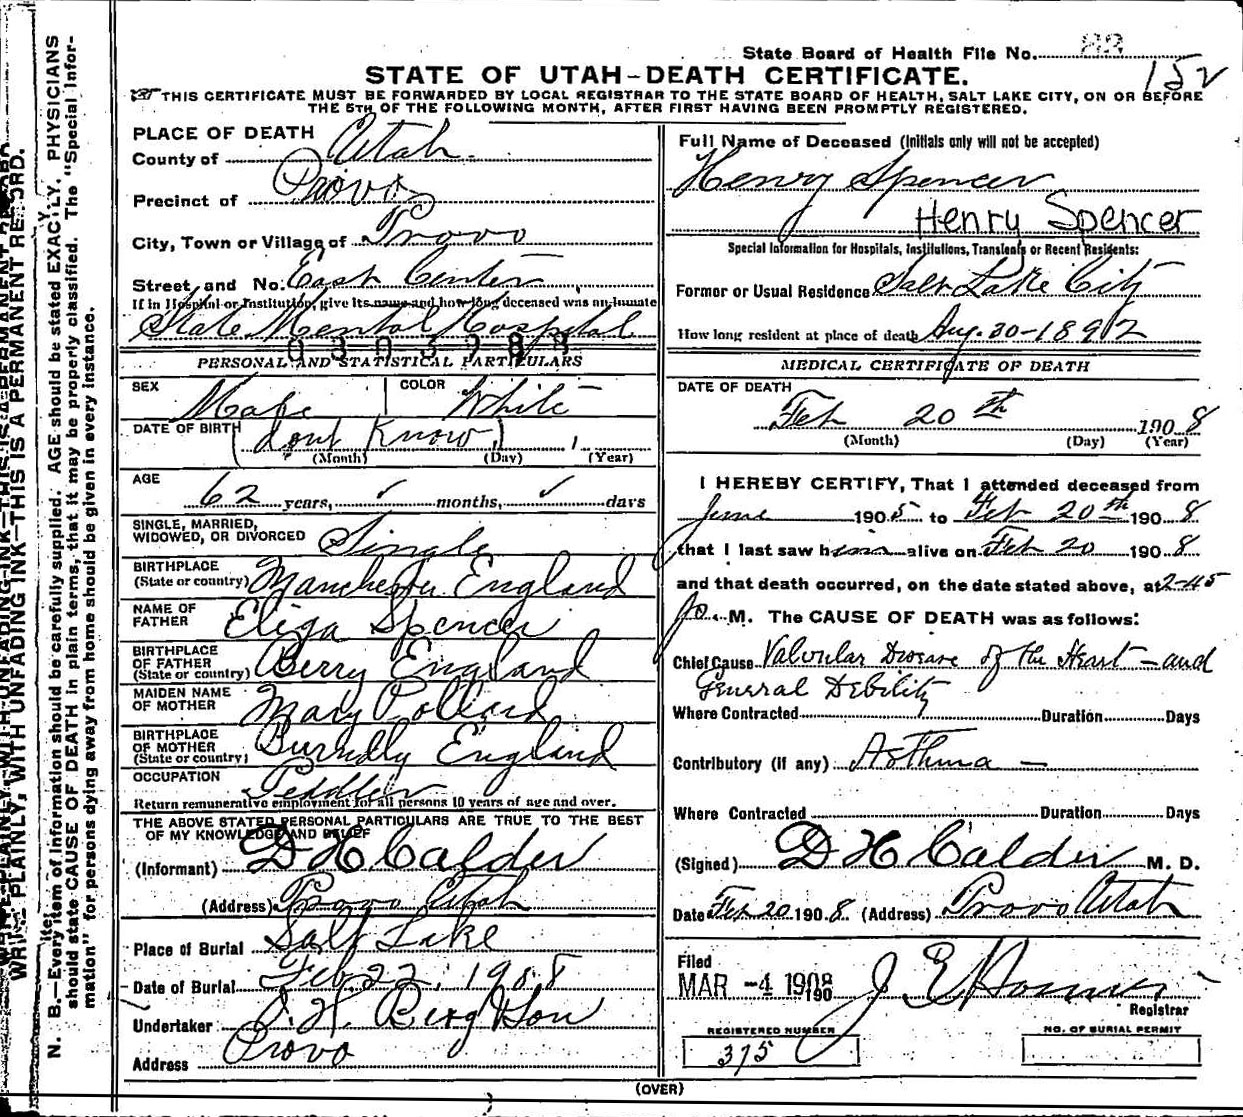 State Board of Health File No. 83
152
STATE OF UTAH–DEATH CERTIFICATE.
THIS CERTIFICATE MUST BE FORWARDED BY LOCAL REGISTRAR TO THE STATE BOARD OF HEALTH, SALT LAKE CITY, ON OR BEFORE
THE 5TH OF THE FOLLOWING MONTH, AFTER FIRST HAVING BEEN PROMPTLY REGISTERED.
PLACE OF DEATH
County of Utah.
Precinct of Provo
City, Town or Village of Provo
Street, and No: East Center
If in Hospital or Institution, give its name and how long deceased was an inmate
State Mental Hospital
PERSONAL AND STATISTICAL PARTICULARS
SEX Male COLOR White
DATE OF BIRTH (dont Know)
(Month) (Day) (Year)
AGE
62 years, ✓ months, ✓ days
SINGLE, MARRIED,
WIDOWED, OR DIVORCED Single
BIRTHPLACE
(State or country) Manchester England
NAME OF
FATHER Eliga Spencer
BIRTHPLACE
OF FATHER
(State or country) Berry England
MAIDEN NAME
OF MOTHER Mary Pollard
BIRTHPLACE
OF MOTHER
(State or country) England
OCCUPATION Peddler
Return remunerative employment for all persons 10 years of age and over.
THE ABOVE STATED PERSONAL PARTICULARS ARE TRUE TO THE BEST
OF MY KNOWLEDGE AND BELIEF
(Informant) D H Calder
(Address) Provo Utah
Place of Burial Salt Lake
Date of Burial Feb. 22, 1908
Undertaker Berg & Son
Address Provo
Full Name of Deceased (Initials only will not be accepted)
Henry Spencer
Henry Spencer
Special Information for Hospitals, Institutions, Transients or Recent Residents:
Former or Usual Residence Salt Lake City
How long resident at place of death Aug. 30-1892
MEDICAL CERTIFICATE OF DEATH
DATE OF DEATH
Feb 20th 1908
(Month) (Day) (Year)
I HEREBY CERTIFY, That I attended deceased from
June 1905 to Feb 20th 1908
that I last saw him alive on Feb 20 1908
and that death occurred, on the date stated above, at 2-45
P. M. The CAUSE OF DEATH was as follows:
Chief Cause Valvular Disease of the Heart – and
General Debility
Where Contracted Duration Days
Contributory (if any) Asthma –
Where Contracted Duration Days
(Signed) D H Calder M. D.
Date Feb 20 1908. (Address) Provo Utah
Filed
MAR -4 1908
190
Registrar
REGISTERED NUMBER
375
NO. OF BURIAL PERMIT
(OVER)
WRITE PLAINLY, WITH UNFADING INK—THIS IS A PERMANENT RECORD.
N. B.—Every item of information should be carefully supplied. AGE should be stated EXACTLY. PHYSICIANS
should state CAUSE OF DEATH in plain terms, that it may be properly classified. The "Special Infor-
mation" for persons dying away from home should be given in every instance.